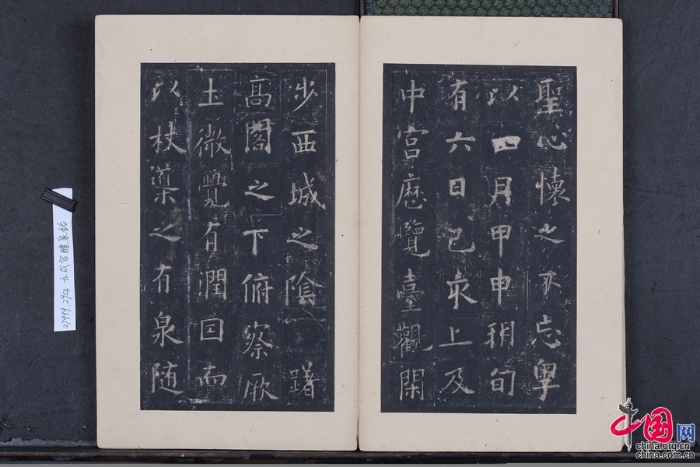 聖心懷之不忘粤
以四月甲申朔旬
有六日己亥上及
中宮歷覽臺觀閑
步西城之陰躇
高閣之下俯察厥
土微覺有潤因而
以杖導之有泉随
九成宮醴泉銘
中国网
china.org.cn
www.china.com.cn